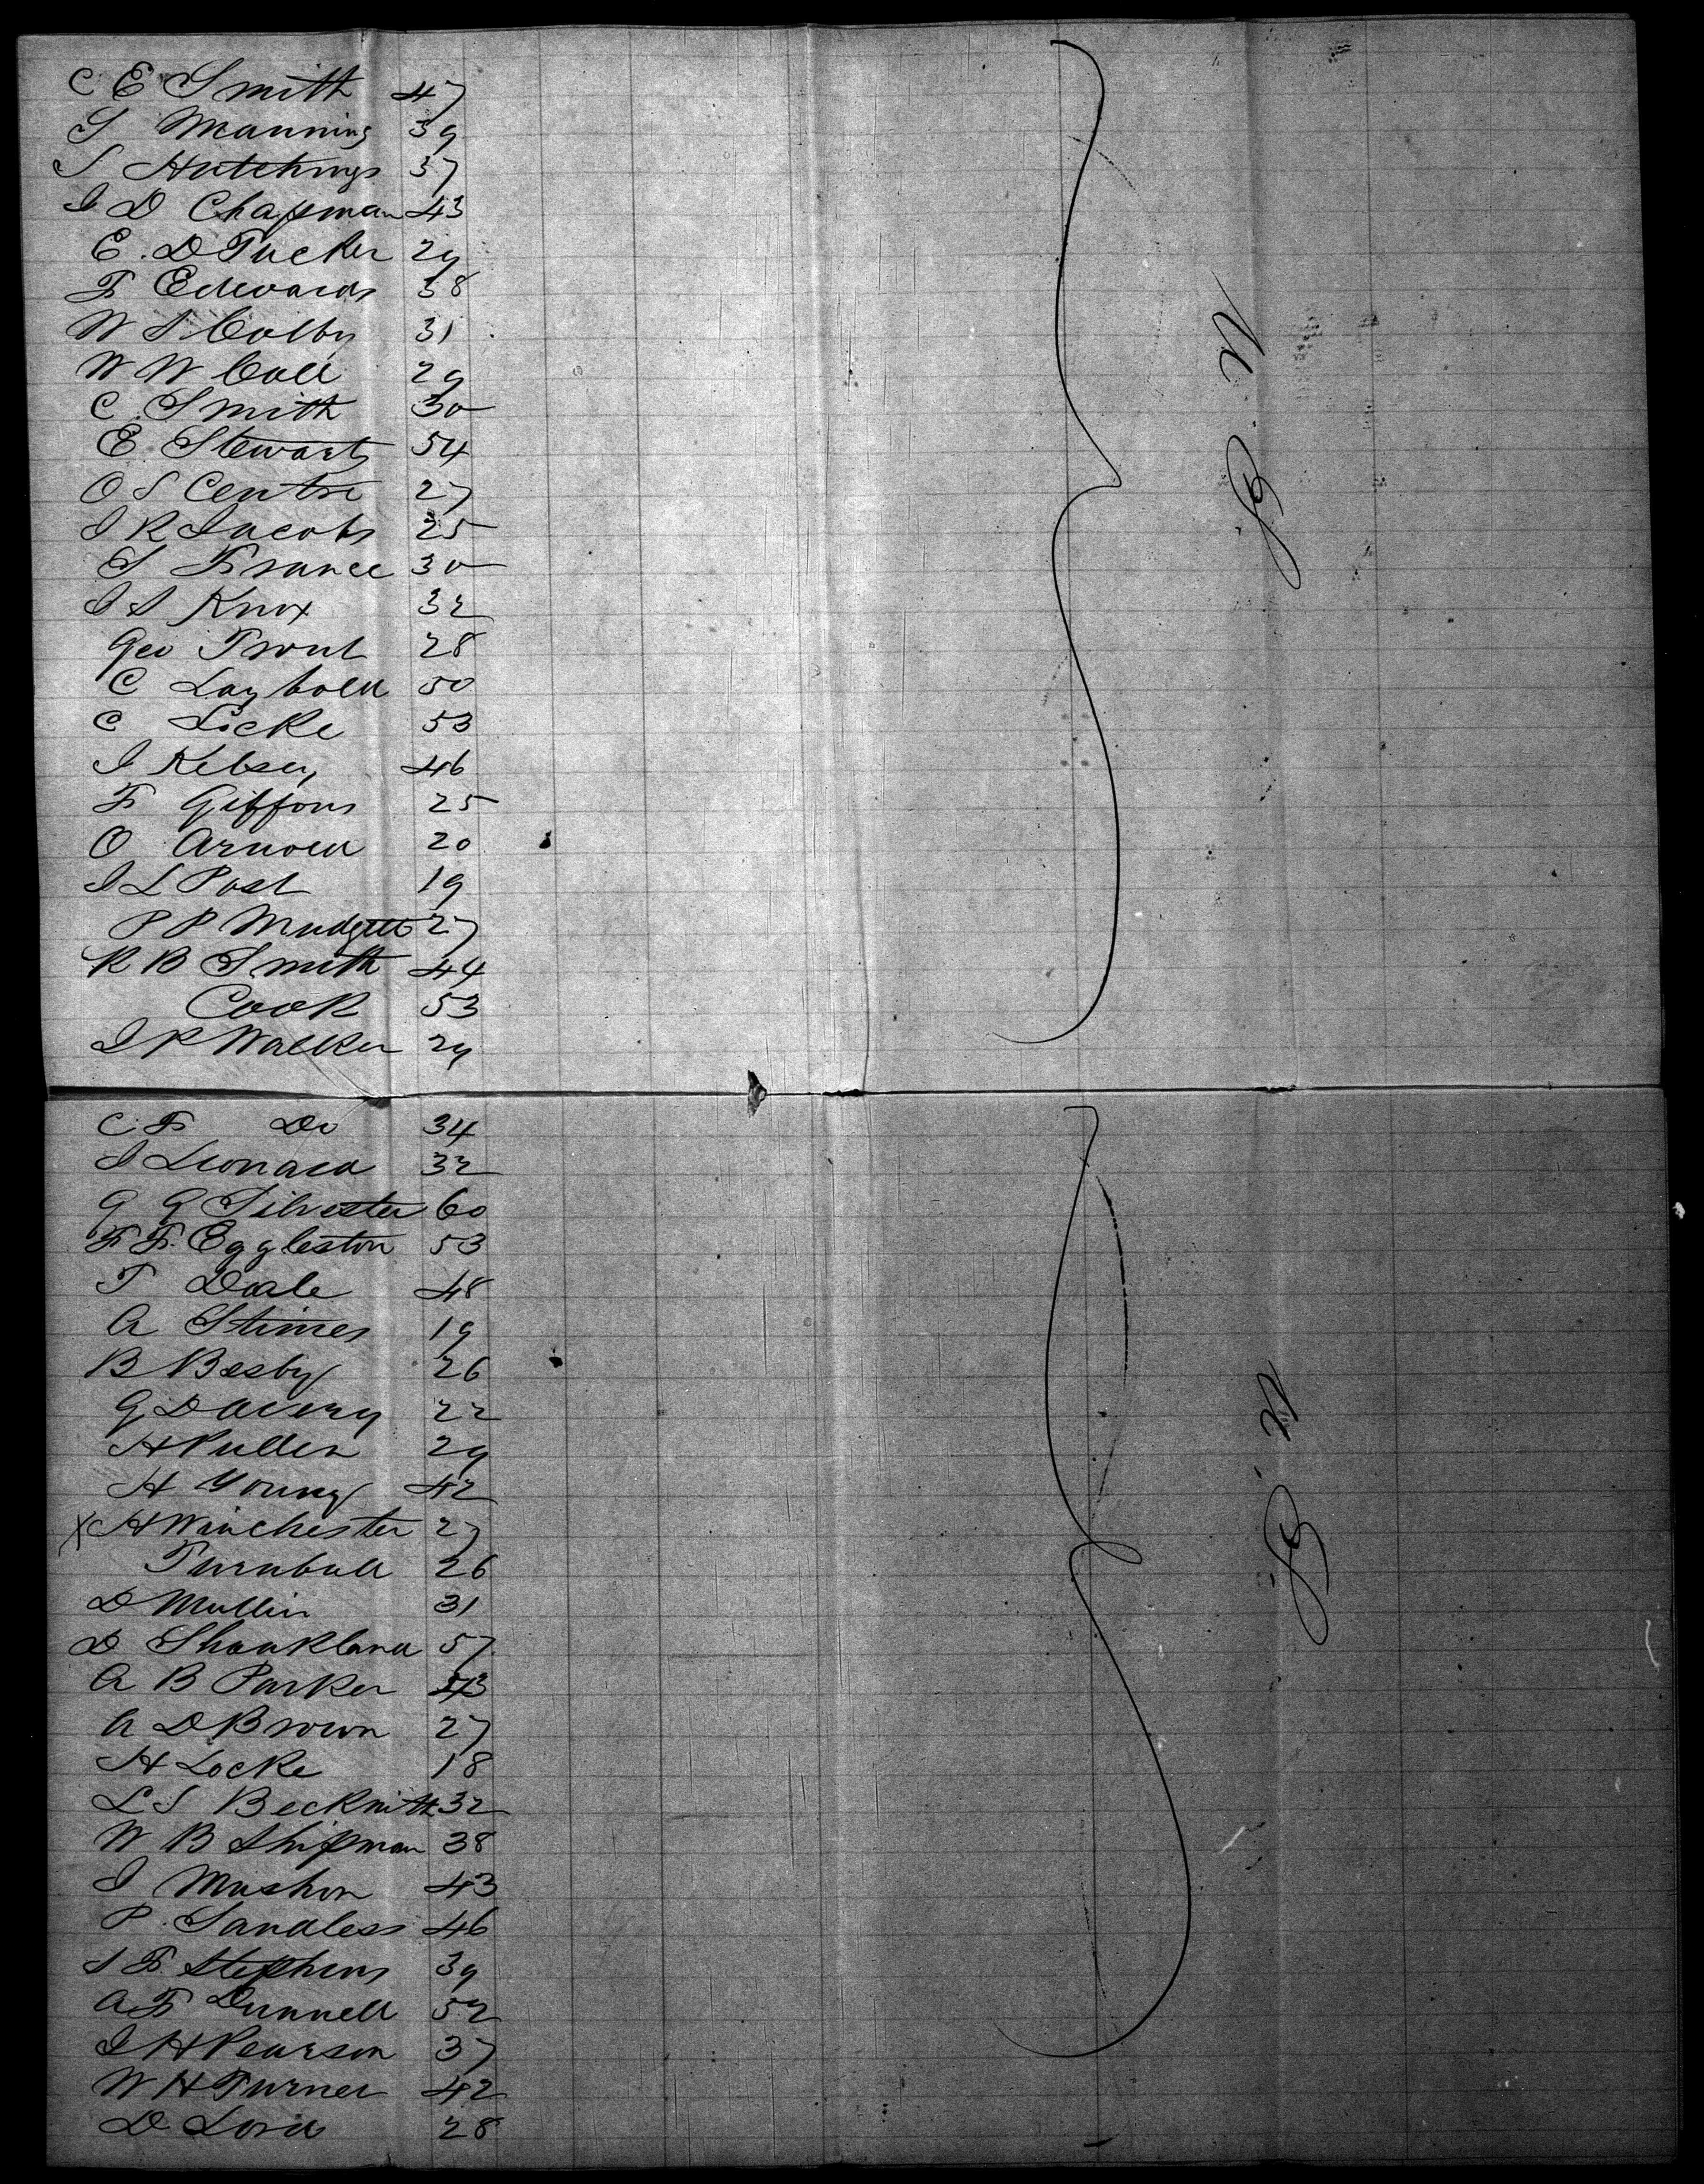 C E Smith 47
S Manning 39
S Hutchings 37
I D Chapman 43
E. D Tucker 29
F Edwards 38
W S Colby 31
W W Call 29
C. Smith 30
E. Stewart 54
O S Centre 27
I R Jacobs 25
S France 30
I S Knox 32
Geo Trout 28
C Laybold 50
C Locke 53
I Kelsey 46
F Giffons 25
O Arnold 20
I L Post 19
P P Mudgett 27
R B Smith 44
Cook 53
I R Walker 29
U. S.
C. F Do 34
I Leonard 32
G G Silvester 60
F F. Eggleston 53
T Dale 48
A Stimes 19
B Besby 26
G D Avery 22
H Pullen 29
H Young 42
X H Winchester 27
Turnbull 26
D Mullin 31
D Shankland 57
A B Parker 43
A D Brown 27
H Locke 18
L S Beckwith 32
W B Shipman 38
I Mashon 43
P. Sandless 46
S F. Stephens 39
A F Dunnell 52
I H Pearson 37
W H Turner 42
D Lord 28
U. S.